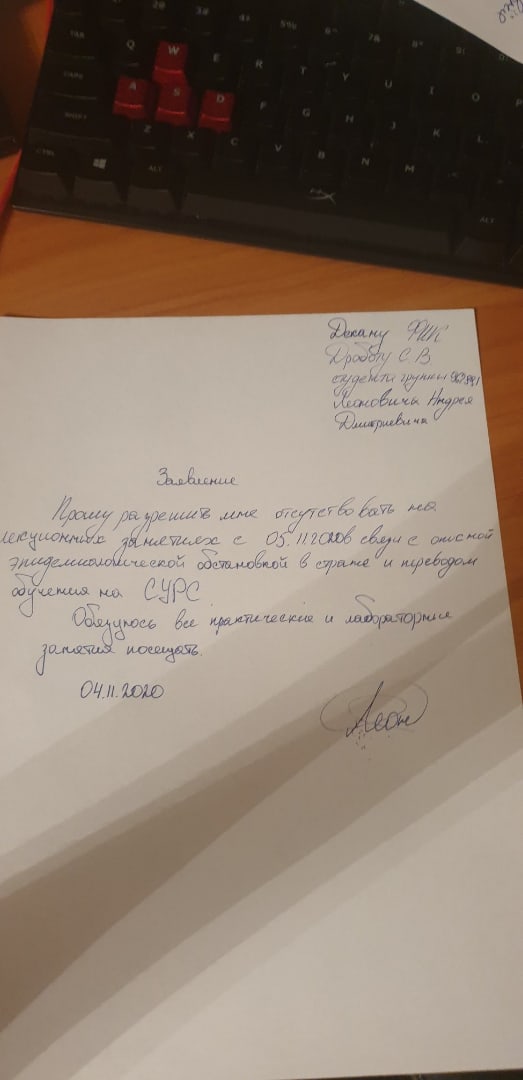 TAB
Q
W
E
R
T
Y
U
I
O
P
CAPS
A
S
D
F
G
H
J
K
L
SHIFT
Z
X
C
V
B
N
M
CTRL
ALT
ALT
Декану ФИК
Дроботу С. В
студента группы
Леоновича Андрея
Дмитриевича
Заявление
Прошу разрешить мне отсутствовать на
лекционных занятиях с 05.11.2020 в связи с опасной
эпидемиологической обстановкой в стране и переводом
обучения на СУРС.
Обязуюсь все практические и лабораторные
занятия посещать.
04.11.2020
Леон